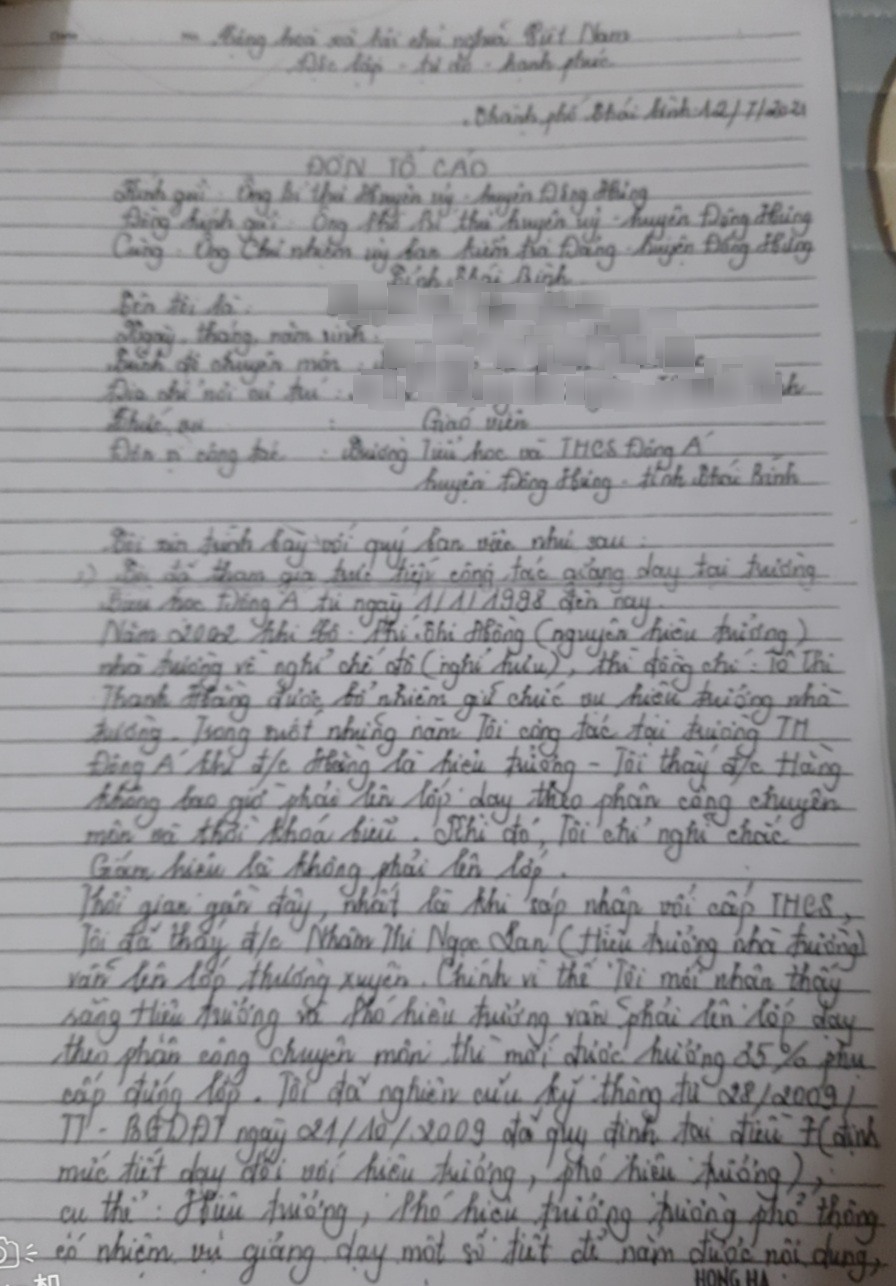 Cộng hoà xã hội chủ nghĩa Việt Nam
Độc lập - tự do - hạnh phúc
Thành phố Thái Bình 12/7/2021
ĐƠN TỐ CÁO
Kính gửi: Ông bí thư Huyện uỷ - huyện Đông Hưng
Đồng kính gửi: Ông Phó Bí thư huyện uỷ - huyện Đông Hưng
Cùng: Ông Chủ nhiệm uỷ ban kiểm tra Đảng - huyện Đông Hưng
Tỉnh Thái Bình
Tên tôi là:
Ngày, tháng, năm sinh:
Trình độ chuyên môn:
Địa chỉ nơi cư trú:
Chức vụ : Giáo viên
Đơn vị công tác : Trường Tiểu học và THCS Đông Á
huyện Đông Hưng - tỉnh Thái Bình
Tôi xin trình bày với quý ban việc như sau:
1) Tôi đã tham gia trực tiếp công tác giảng dạy tại trường
Tiểu học Đông Á từ ngày 1/1/1998 đến nay.
Năm 2002 khi Thị Hồng (nguyên hiệu trưởng)
nhà trường về nghỉ chế độ (nghỉ hưu), thì đồng chí: Tô Thị
Thanh Hằng được bổ nhiệm giữ chức vụ hiệu trưởng nhà
trường. Trong suốt những năm Tôi công tác tại trường TH
Đông Á khi đ/c Hằng là hiệu trưởng - Tôi thấy đ/c Hằng
không bao giờ phải lên lớp dạy theo phân công chuyên
môn và thời khoá biểu. Khi đó, Tôi chỉ nghĩ chắc
Giám hiệu là không phải lên lớp.
Thời gian gần đây, nhất là khi sáp nhập với cấp THCS,
Tôi đã thấy đ/c Nhâm Thị Ngọc Lan (Hiệu trưởng nhà trường)
vẫn lên lớp thường xuyên. Chính vì thế Tôi mới nhận thấy
rằng Hiệu trưởng và Phó hiệu trưởng vẫn phải lên lớp dạy
theo phân công chuyên môn thì mới được hưởng 35% phụ
cấp đứng lớp. Tôi đã nghiên cứu kỹ thông tư 28/2009/
TT - BGDĐT ngày 21/10/2009 đã quy định tại điều 7 (định
mức tiết dạy đối với hiệu trưởng, phó hiệu trưởng),
cụ thể: Hiệu trưởng, Phó hiệu trưởng trường phổ thông
có nhiệm vụ giảng dạy một số tiết để nắm được nội dung,
HONG HA